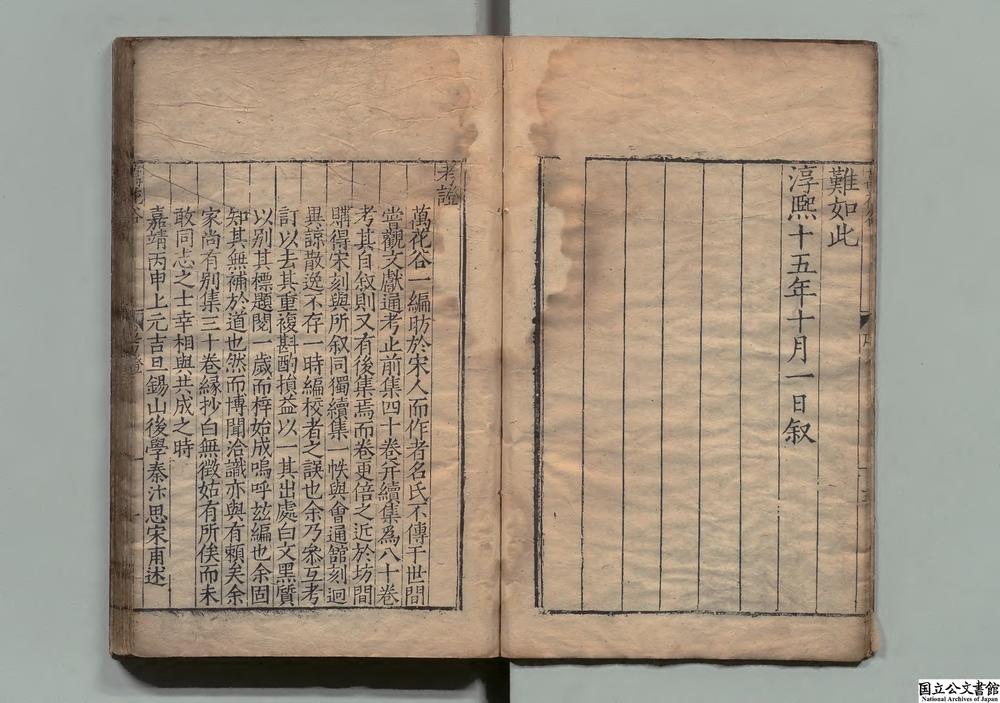 難如此
淳熙十五年十月一日叙
考證
萬花谷一編昉於宋人而作者名氏不傳于世間
嘗觀文獻通考止前集四十卷并續集爲八十卷
考其自叙則又有後集焉而卷更倍之近於坊間
購得宋刻與所叙同獨續集一帙與會通舘刻迥
異諒散逸不存一時編校者之誤也余乃叅互考
訂以去其重複斟酌損益以一其出處白文黑質
以别其標題閱一歲而梓始成嗚呼玆編也余固
知其無補於道也然而博聞洽識亦與有頼矣余
家尚有别集三十卷緣抄白無徴姑有所俟而未
敢同志之士幸相與共成之時
嘉靖丙申上元吉旦錫山後學秦汴思宋甫述
考證
国立公文書館
National Archives of Japan